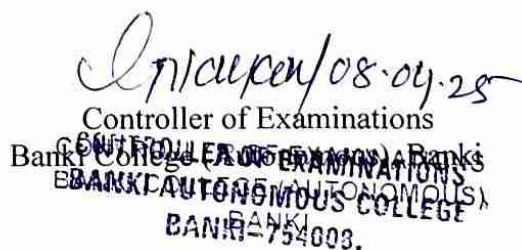 08.04.25
Controller of Examinations
Banki College (Autonomous), Banki
CONTROLLER OF EXAMINATIONS
BANKI AUTONOMOUS COLLEGE
BANKI
BANKI-754008.